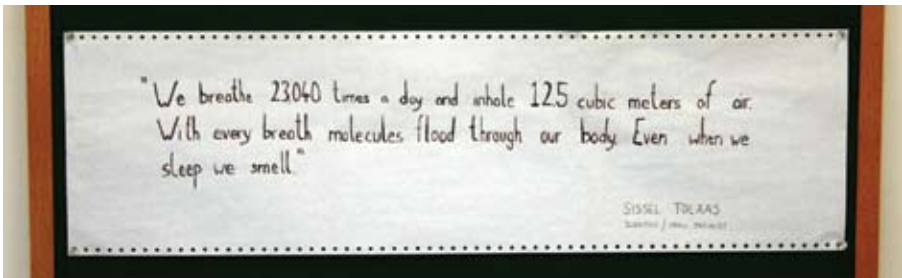 "We breathe 23.040 times a day and inhale 12.5 cubic meters of air.
With every breath molecules flood through our body. Even when we
sleep we smell."
SISSEL TOLAAS